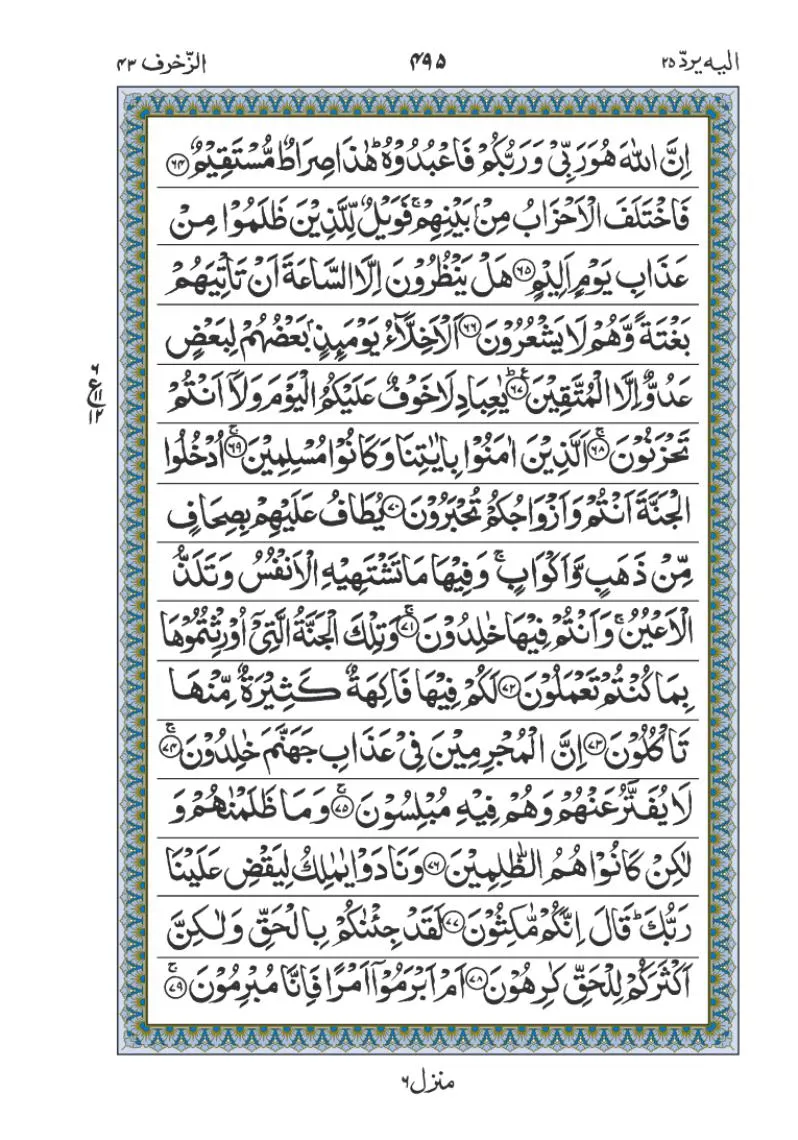 الزّخرف ۴۳
۴۹۵
الیه یردّ ۲۵
اِنَّ اللّٰهَ هُوَ رَبِّیْ وَ رَبُّكُمْ فَاعْبُدُوْهُ ؕ هٰذَا صِرَاطٌ مُّسْتَقِیْمٌ ﴿۶۴﴾
فَاخْتَلَفَ الْاَحْزَابُ مِنْۢ بَیْنِهِمْ ۚ فَوَیْلٌ لِّلَّذِیْنَ ظَلَمُوْا مِنْ
عَذَابِ یَوْمٍ اَلِیْمٍ ﴿۶۵﴾ هَلْ یَنْظُرُوْنَ اِلَّا السَّاعَةَ اَنْ تَاْتِیَهُمْ
بَغْتَةً وَّ هُمْ لَا یَشْعُرُوْنَ ﴿۶۶﴾ اَلْاَخِلَّآءُ یَوْمَىِٕذٍۭ بَعْضُهُمْ لِبَعْضٍ
عَدُوٌّ اِلَّا الْمُتَّقِیْنَ ﴿۶۷﴾ؕ۠ یٰعِبَادِ لَا خَوْفٌ عَلَیْكُمُ الْیَوْمَ وَ لَاۤ اَنْتُمْ
تَحْزَنُوْنَ ﴿۶۸﴾ۚ اَلَّذِیْنَ اٰمَنُوْا بِاٰیٰتِنَا وَ كَانُوْا مُسْلِمِیْنَ ﴿۶۹﴾ۚ اُدْخُلُوا
الْجَنَّةَ اَنْتُمْ وَ اَزْوَاجُكُمْ تُحْبَرُوْنَ ﴿۷۰﴾ یُطَافُ عَلَیْهِمْ بِصِحَافٍ
مِّنْ ذَهَبٍ وَّ اَكْوَابٍ ۚ وَ فِیْهَا مَا تَشْتَهِیْهِ الْاَنْفُسُ وَ تَلَذُّ
الْاَعْیُنُ ۚ وَ اَنْتُمْ فِیْهَا خٰلِدُوْنَ ﴿۷۱﴾ۚ وَ تِلْكَ الْجَنَّةُ الَّتِیْۤ اُوْرِثْتُمُوْهَا
بِمَا كُنْتُمْ تَعْمَلُوْنَ ﴿۷۲﴾ لَكُمْ فِیْهَا فَاكِهَةٌ كَثِیْرَةٌ مِّنْهَا
تَاْكُلُوْنَ ﴿۷۳﴾ اِنَّ الْمُجْرِمِیْنَ فِیْ عَذَابِ جَهَنَّمَ خٰلِدُوْنَ ﴿۷۴﴾ۚ
لَا یُفَتَّرُ عَنْهُمْ وَ هُمْ فِیْهِ مُبْلِسُوْنَ ﴿۷۵﴾ۚ وَ مَا ظَلَمْنٰهُمْ وَ
لٰكِنْ كَانُوْا هُمُ الظّٰلِمِیْنَ ﴿۷۶﴾ وَ نَادَوْا یٰمٰلِكُ لِیَقْضِ عَلَیْنَا
رَبُّكَ ؕ قَالَ اِنَّكُمْ مّٰكِثُوْنَ ﴿۷۷﴾ لَقَدْ جِئْنٰكُمْ بِالْحَقِّ وَ لٰكِنَّ
اَكْثَرَكُمْ لِلْحَقِّ كٰرِهُوْنَ ﴿۷۸﴾ اَمْ اَبْرَمُوْۤا اَمْرًا فَاِنَّا مُبْرِمُوْنَ ﴿۷۹﴾ۚ
۶
ع ۱۱
۱۲
منزل ۶